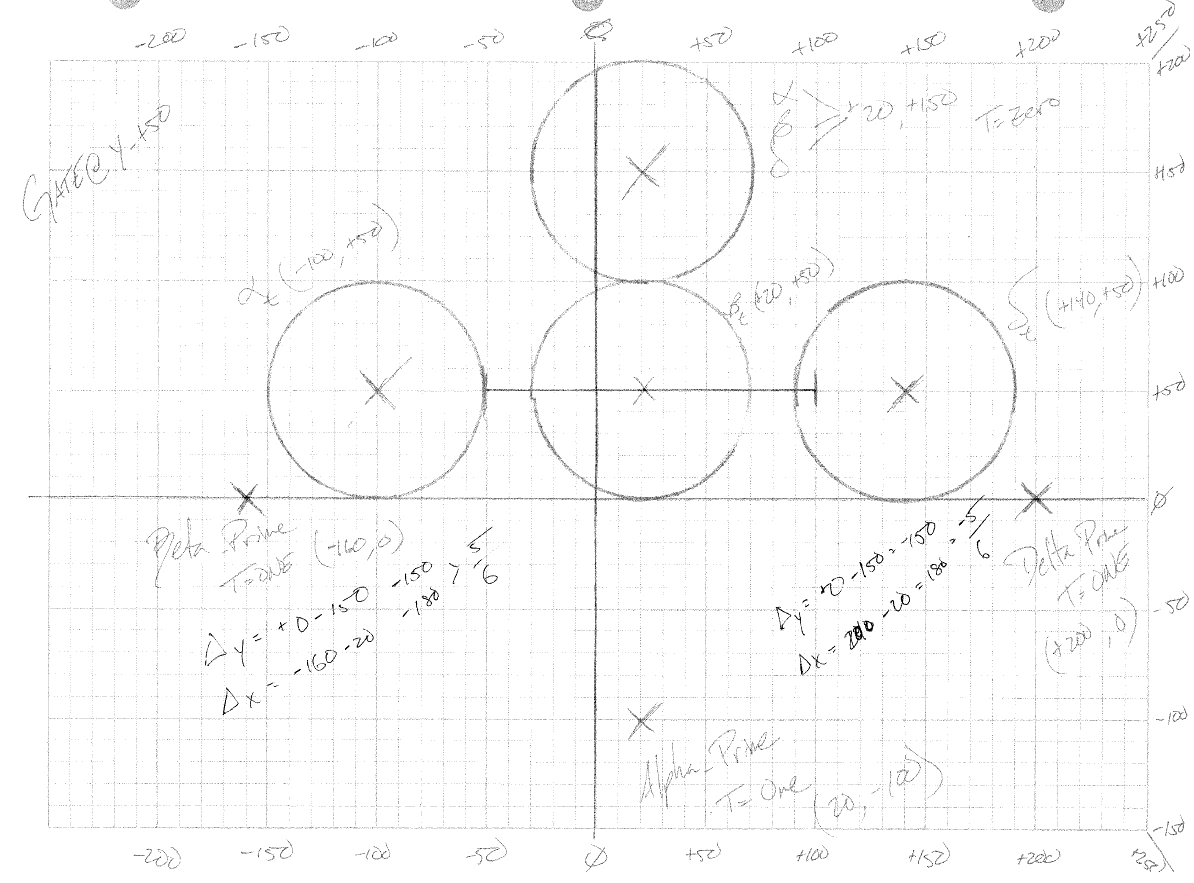 -200 -150 -100 -50 Ø +50 +100 +150 +200 +250
+200
GATE@ Y +50
α
β > +20, +150 T=Zero
δ
+150
αt (-100, +50)
βt (+20, +50)
δt (+140, +50)
+100
+50
Ø
Beta_Prime
T=ONE (-160, 0)
Δy = +0-150 -150 > 5/6
Δx = -160-20 -180
Δy = 0-150 = -150 = -5/6
Δx = 200-20 = 180
Delta Prime
T=ONE
(+200, 0)
-50
-100
Alpha_Prime
T=One (20, -100)
-150
-200 -150 -100 -50 Ø +50 +100 +150 +200 +250